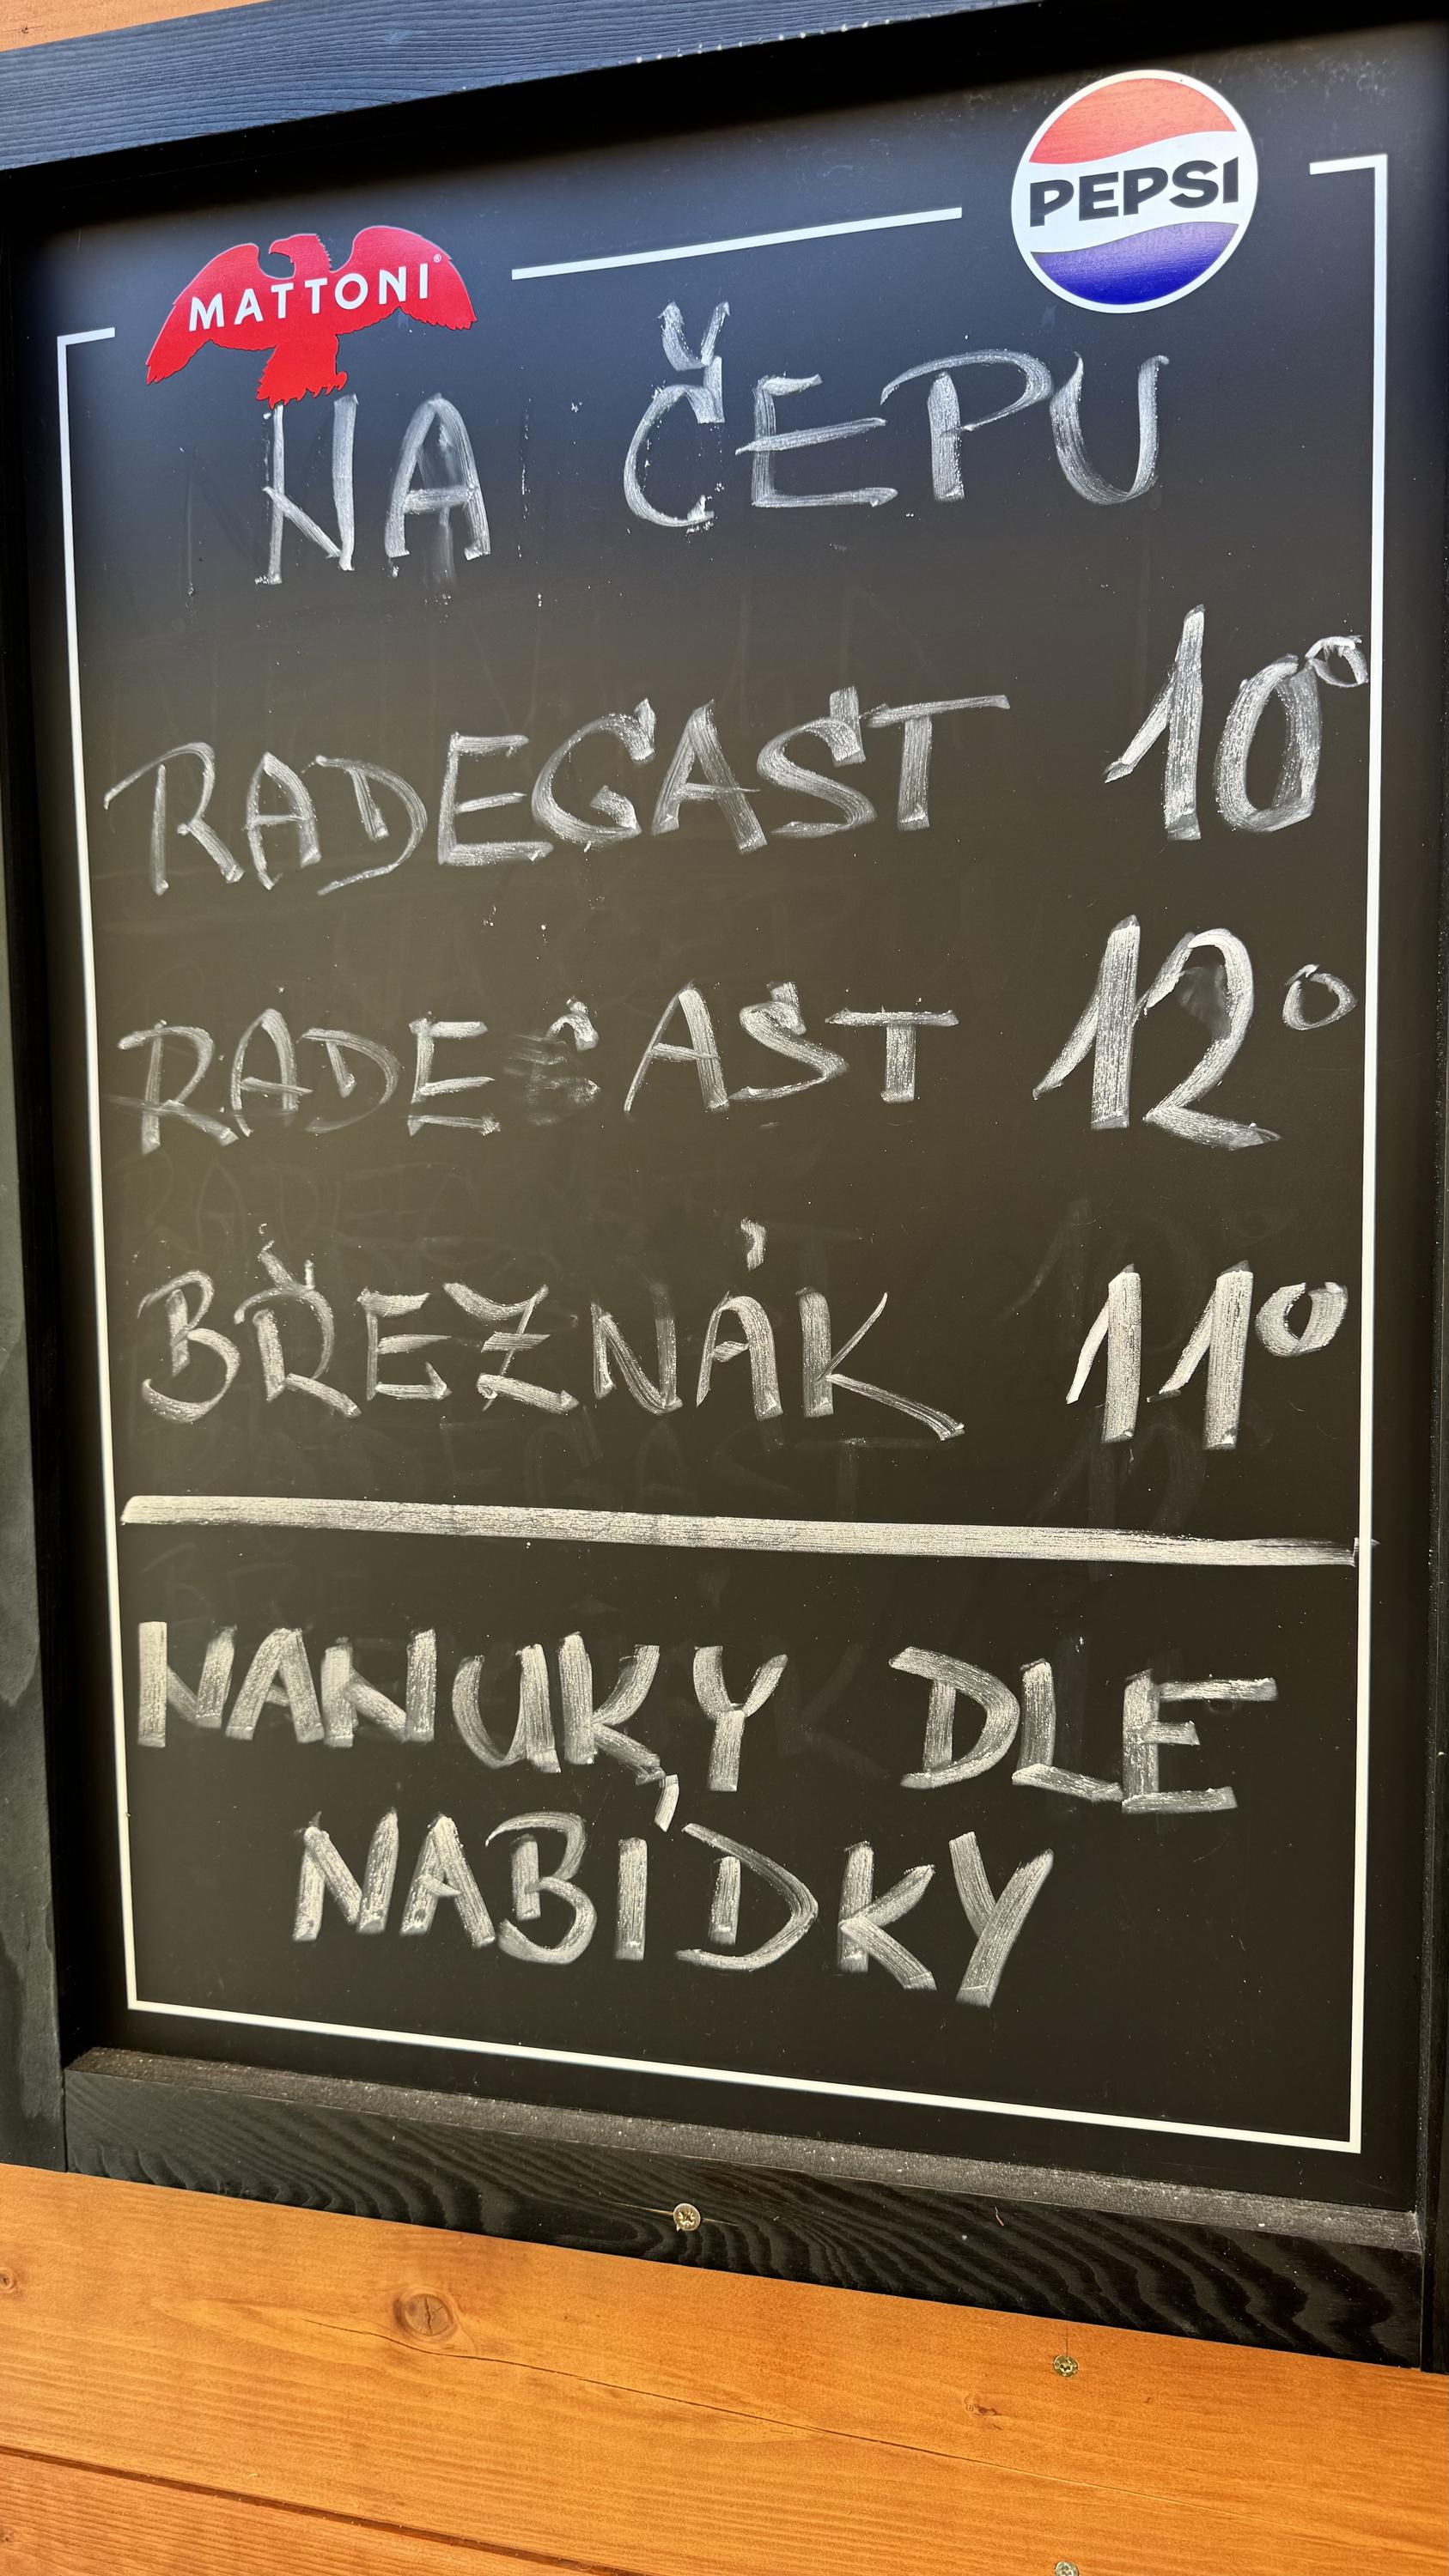 MATTONI®
PEPSI
NA ČEPU
RADEGAST 10°
RADEGAST 12°
BŘEZNÁK 11°
NANUKY DLE
NABÍDKY